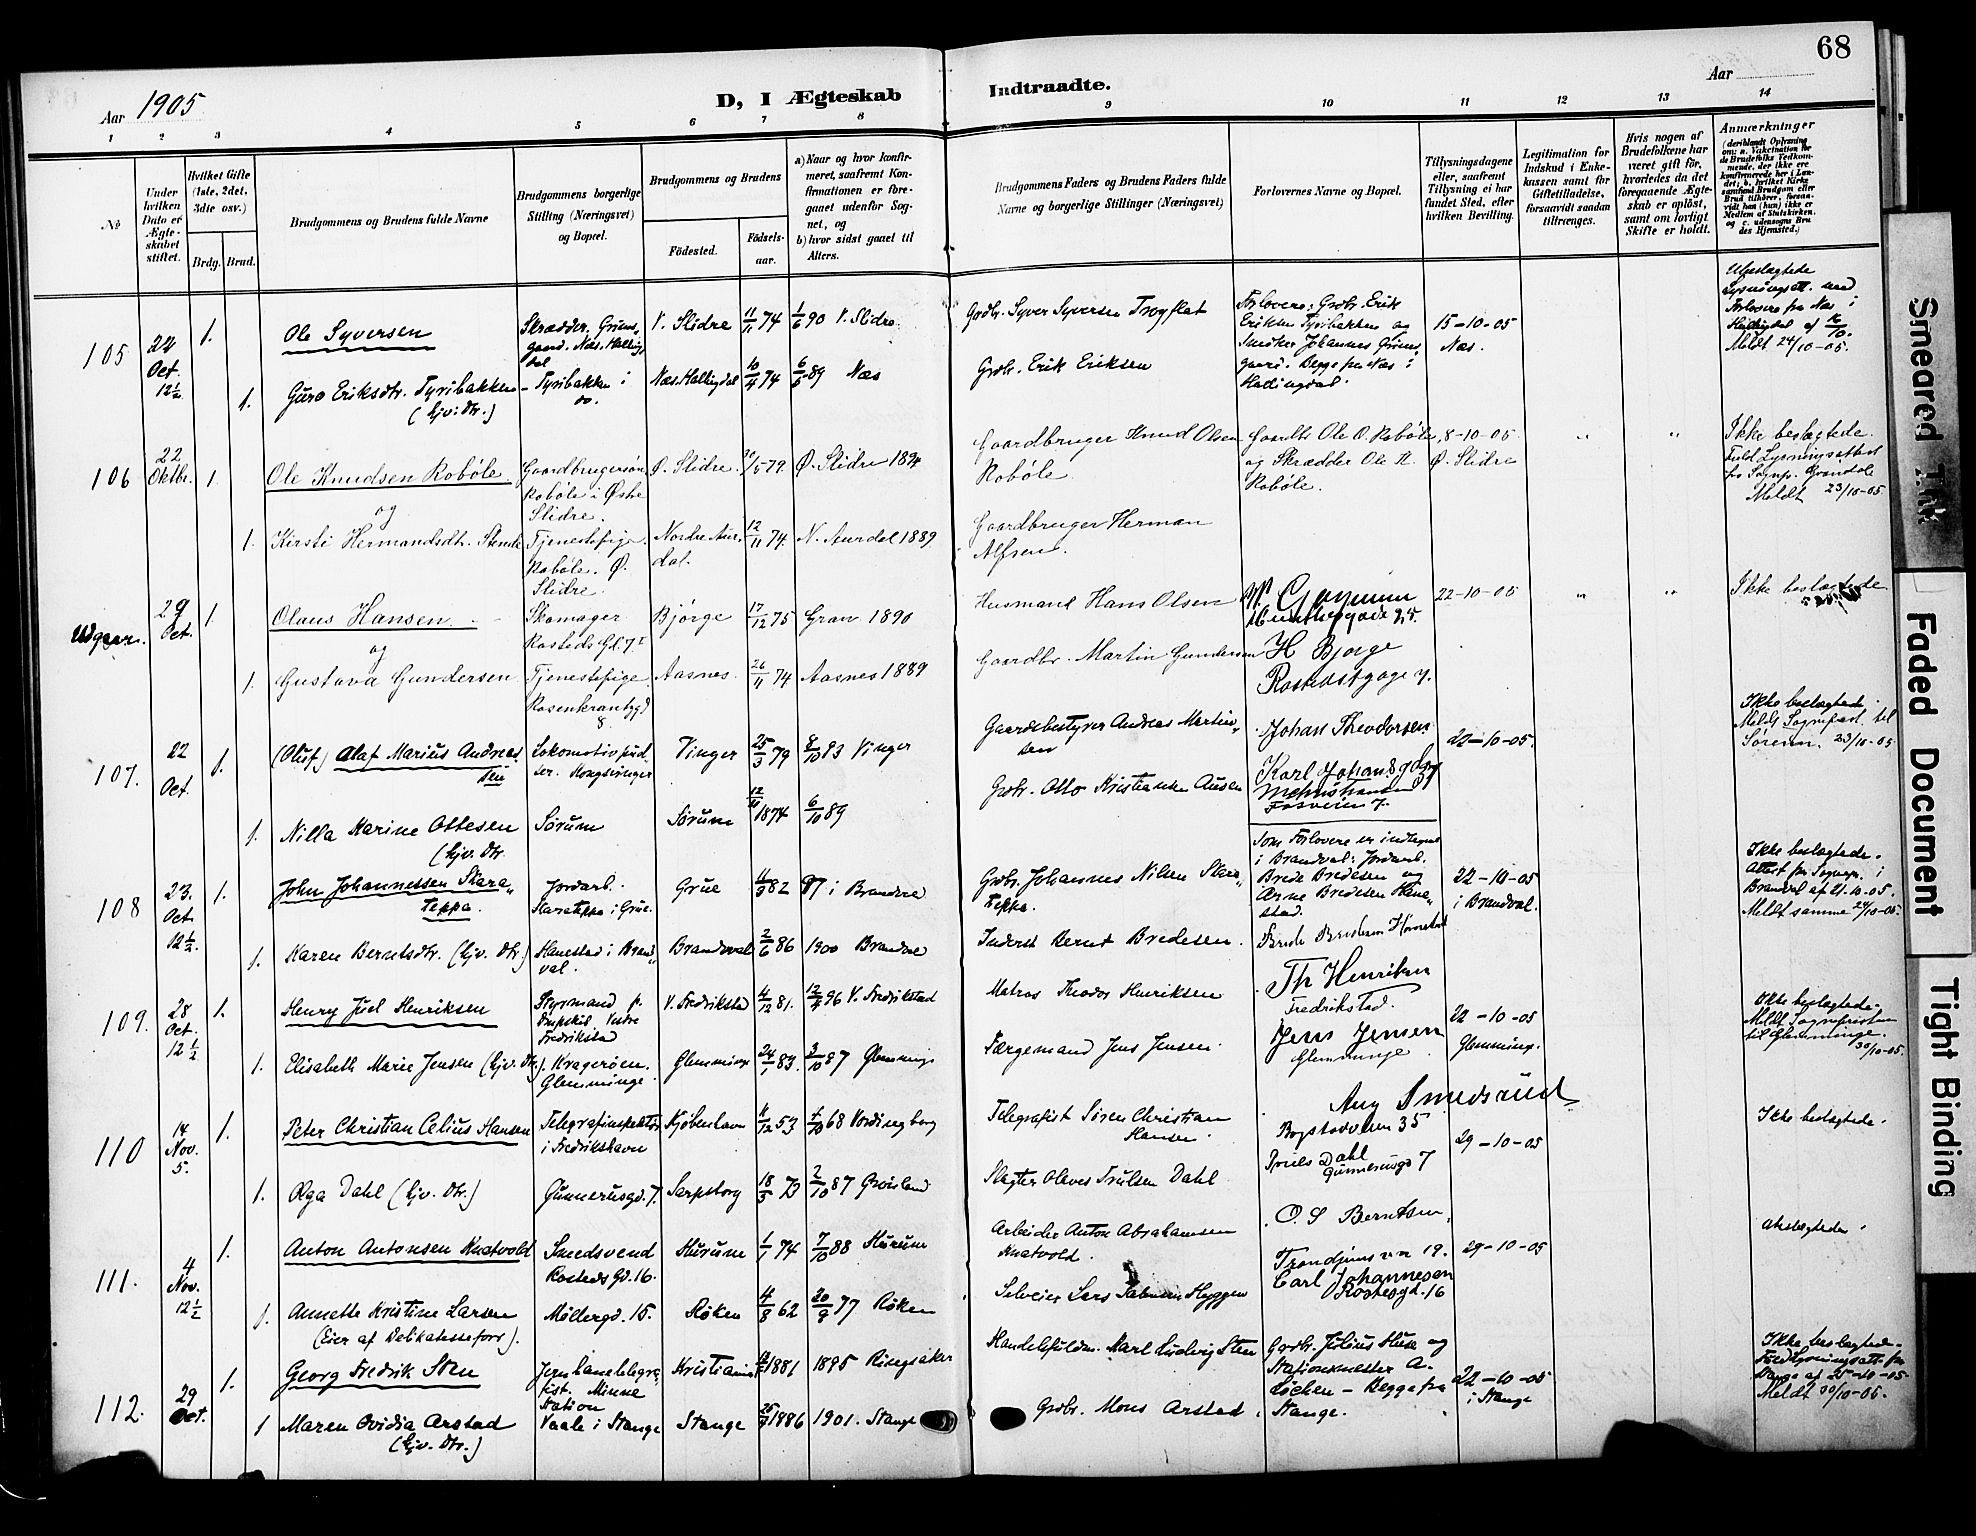 68
Aar 1905
D, I Ægteskab Indtraadte.
Aar
1 2 3 4 5 6 7 8 9 10 11 12 13 14
No
Under hvilken Dato er Ægteskabet stiftet.
Hvilket Gifte (1ste, 2det, 3die osv.)
Brdg. Brud.
Brudgommens og Brudens fulde Navne
Brudgommens borgerlige Stilling (Næringsvei) og Bopæl.
Brudgommens og Brudens
Fødested.
Fødselsaar.
a) Naar og hvor konfirmeret, saafremt Konfirmationen er foregaaet udenfor Sognet, og
b) hvor sidst gaaet til Alters.
Brudgommens Faders og Brudens Faders fulde Navne og borgerlige Stillinger (Næringsvei)
Forlovernes Navne og Bopæl.
Tillysningsdagene eller, saafremt Tillysning ei har fundet Sted, efter hvilken Bevilling.
Legitimation for Indskud i Enkekassen samt for Giftetilladelse, forsaavidt saadan tiltrænges.
Hvis nogen af Brudefolkene har været gift før, hvorledes da det foregaaende Ægteskab er opløst, samt om lovligt Skifte er holdt.
Anmærkninger
105 22 Oct. 12½ 1. Ole Syversen
Skrædder. Grimsgaard. Næs. Hallingdal
V. Slidre 11/11 74 1/6 90 V. Slidre
Grdbr. Syver Syversen Trogflat
Forlovere: Grdbr. Erik Eriksen Tyribakken og Snedker Johannes Grimsgaard. Begge fra Næs i Hallingdal.
15-10-05 Næs.
Ubeslægtede
Lysningsatt. med Forlovere fra Næs i Hallingdal af 16/10.
Meldt 24/10-05.
1. Guro Eriksdtr. Tyribakken (hjv: dtr.)
- Tyribakken i do.
Næs. Hallingdal 10/4 74 6/5 89 Næs
Grdbr. Erik Eriksen
106 22 Oktbr. 1. Ole Knudsen Robøle.
og
Gaardbrugersøn Robøle i Østre Slidre.
Ø. Slidre 20/5 79. Ø. Slidre 1894
Gaardbruger Knud Olsen Robøle.
Gaardbr. Ole O. Robøle, og Skrædder Ole K. Robøle.
8-10-05. Ø. Slidre
" "
Ikke beslægtede.
Fuld Lysningsattest fra Sognep. Grøndal
Meldt 23/10-05
1. Kirsti Hermandsdtr. Stende
Tjenestepige. Robøle. Ø. Slidre.
Nordre Aurdal. 12/11 74. N. Aurdal 1889
Gaardbruger Herman Alfsen.
Udgaar. 29 Oct. 1. Olaus Hansen.
og
Skomager Rosteds Gd. 7 I
Bjørge 17/12 75 Gran 1890
Husmand Hans Olsen
22-10-05
" "
Ikke beslægtede
1. Gustava Gundersen
Tjenestepige. Rosenkrantzgd 8.
Aasnes. 26/11 74 Aasnes 1889
Gaardbr. Martin Gundersen
H Bjørge
107. 22 Oct. 1. (Oluf) Olaf Marius Andreassen
Lokomotivpudser. Kongsvinger
Vinger 25/3 79 8/10 93 Vinger
Gaardsbestyrer Andreas Martinsen
Johan Theodorsen
22-10-05.
Ikke beslægtede.
Meldt Sognepræst. til Sørum. 23/10-05
1. Nilla Karine Ottesen (hjv. dtr.
Sørum Sørum 12/10 1874 6/10 89
Grdbr. Otto Kristiansen Ausen
108 23. Oct 12½. 1. John Johannessen Skarateppa.
Jordarb. Skarateppa i Grue.
Grue 11/3 82 97 i Brandval
Grdbr. Johannes Nilsen Skarateppa.
Som Forlovere er indtegnet i Brandval: Jordarb. Brede Bredesen og Arne Bredesen Hanestad.
22-10-05 i Brandval.
Ikke beslægtede.
Attest fra Sognep. i Brandval af 21-10-05.
Meldt samme 24/10-05.
1. Karen Berntsdtr. (hjv. dtr.)
Hanestad i Brandval.
Brandval 2/6 86 1900 Brandval
Inderst Bernt Bredesen.
109. 28 Oct. 12½ 1. Henry Juel Henriksen
Styrmand p. Dampskib Vestre Fredrikstad
V. Fredrikstad 4/12 81. 12/4 96 V. Fredrikstad
Matros Theodor Henriksen
Th Henriksen
Fredrikstad.
22-10-05 Glemminge.
Ikke beslægtede.
Meldt Sognepresten til Glemminge. 30/10-05.
1. Elisabeth Marie Jensen (hjv. dtr.)
Kragerøen. Glemminge.
Glemminge 24/1 83. 3/10 87 Glemminge
Færgemand Jens Jensen.
Jens Jensen
Glemminge
110 14 Nov. 5. 1. Peter Christian Celius Hansen
Telegrafinspektør i Fredrikshavn
Kjøbenhavn 11/12 53 4/10 68 Vordingborg
Telegrafist Søren Christian Hansen.
Aug Smedsrud
Bogstadveien 35
29-10-05
Ikke beslægtede.
1. Olga Dahl (hjv. dtr.)
Gunnerusgd. 7.
Sarpsborg 18/3 73 2/10 87 Grønland
Slagter Olaves Truelsen Dahl
Truels Dahl
Gunnerusgd 7
111. 4 Nov. 12½ 1. Anton Antonsen Knatvold
Smedsvend Rosteds Gd. 16.
Hurum 1/1 74 7/10 88 Hurum
Arbeider Anton Abrahamsen Knatvold.
O. S Berntsen,
Trondjemsvn 19.
29-10-05
Ubeslægtede.
1. Annette Kristine Larsen
(Eier af Delikatesseforr).
Møllergd. 15.
Røken 4/8 62 30/9 77 Røken
Selveier Lars Salvesen Hyggen
Carl Johannesen
Rostedgd. 16
112. 29 Oct. 1. Georg Fredrik Sten
Jernbanetelegrafist. Minne Station
Kristiania 1881 1895 Ringsaker
Handelsfuldm. Karl Ludvig Sten
Grdbr. Julius Huse og Stationsmester A. Løchen - Begge fra Stange.
22-10-05 i Stange
Ikke beslægtede.
Fuld Lysningsatt. fra Stange af 25-10-05
Meldt 30/10-05.
1 Maren Ovidia Arstad (hjv. dtr.)
Vaale i Stange
Stange 25/9 1886 1901. Stange
Grdbr. Mons Arstad
Smeared Ink
Faded Document
Tight Binding